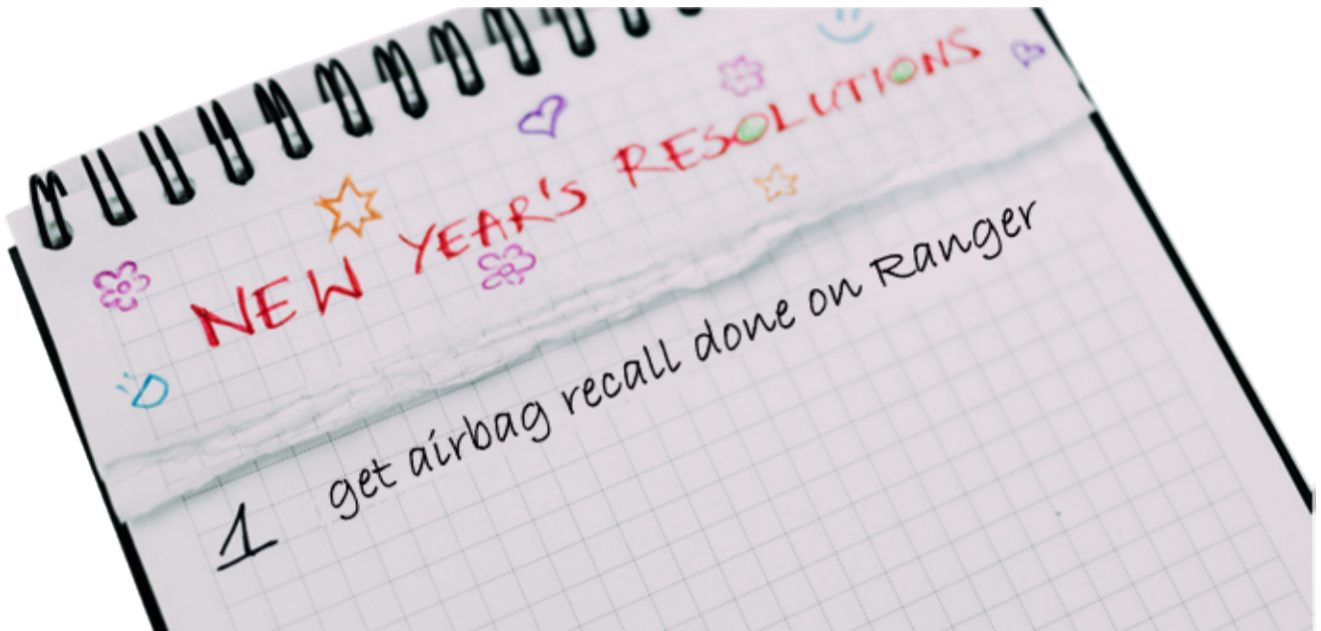 NEW YEAR'S RESOLUTIONS
1 get airbag recall done on Ranger